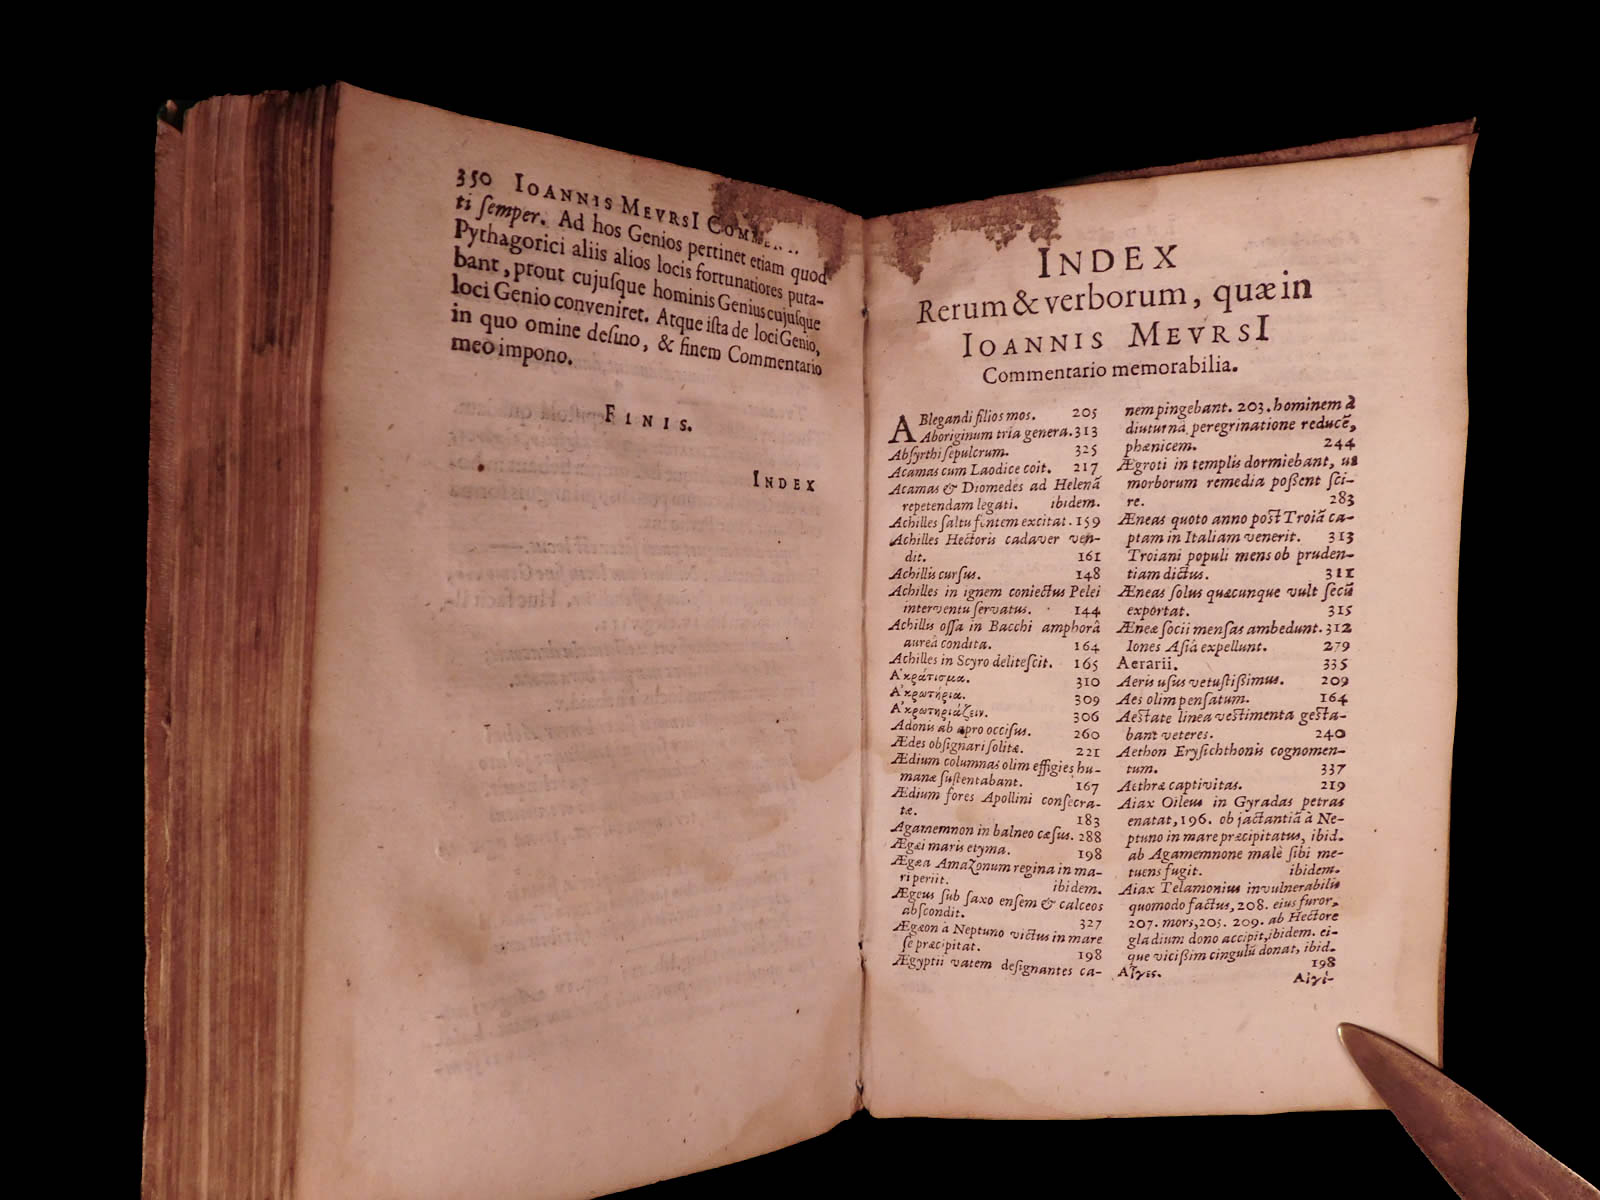 350 IOANNIS MEVRSI COMMEN.
ti ſemper. Ad hos Genios pertinet etiam quod
Pythagorici aliis alios locis fortunatiores puta-
bant, prout cujuſque hominis Genius cujuſque
loci Genio conveniret. Atque iſta de loci Genio,
in quo omine deſino, & finem Commentario
meo impono.
FINIS.
INDEX
INDEX
Rerum & verborum, quæ in
IOANNIS MEVRSI
Commentario memorabilia.
ABlegandi filios mos. 205
Aboriginum tria genera. 313
Abſyrthi ſepulcrum. 325
Acamas cum Laodice coit. 217
Acamas & Diomedes ad Helenã
repetendam legati. ibidem.
Achilles ſaltu fontem excitat. 159
Achilles Hectoris cadaver ven-
dit. 161
Achillis curſus. 148
Achilles in ignem coniectus Pelei
interventu ſervatus. 144
Achillis oſſa in Bacchi amphorâ
aureâ condita. 164
Achilles in Scyro deliteſcit. 165
Ἀκράτισμα. 310
Ἀκρωτήρια. 309
Ἀκρωτηριάζειν. 306
Adonis ab apro occiſus. 260
Ædes obſignari ſolitæ. 221
Ædium columnas olim effigies hu-
manæ ſuſtentabant. 167
Ædium fores Apollini conſecra-
tæ. 183
Agamemnon in balneo cæſus. 288
Ægæi maris etyma. 198
Ægæa Amazonum regina in ma-
ri periit. ibidem.
Ægeus ſub ſaxo enſem & calceos
abſcondit. 327
Ægæon à Neptuno victus in mare
ſe præcipitat. 198
Ægyptii vatem deſignantes ca-
nem pingebant. 203. hominem à
diuturnâ peregrinatione reducẽ,
phœnicem. 244
Ægroti in templis dormiebant, ut
morborum remedia poſſent ſci-
re. 283
Æneas quoto anno poſt Troiã ca-
ptam in Italiam venerit. 313
Troiani populi mens ob pruden-
tiam dictus. 311
Æneas ſolus quæcunque vult ſecũ
exportat. 315
Æneæ ſocii menſas ambedunt. 312
Iones Aſiâ expellunt. 279
Aerarii. 335
Aeris uſus vetuſtiſſimus. 209
Aes olim penſatum. 164
Aeſtate linea veſtimenta geſta-
bant veteres. 240
Aethon Eryſichthonis cognomen-
tum. 337
Aethræ captivitas. 219
Aiax Oileus in Gyradas petras
enatat, 196. ob jactantiã à Ne-
ptuno in mare præcipitatus, ibid.
ab Agamemnone malè ſibi me-
tuens fugit. ibidem.
Aiax Telamonius invulnerabilis
quomodo factus, 208. eius furor,
207. mors, 205. 209. ab Hectore
gladium dono accipit, ibidem. ei-
que viciſſim cingulũ donat, ibid.
Αἶγες. 198
Αἰγί-